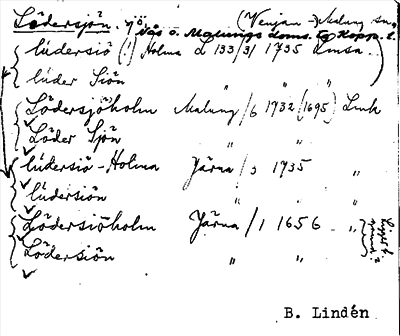 Lödersjön. sjö, (Venjan → Malung sn,
Nås o. Malungs doms. tg Kopp. l.
lüdersiö (!) Holma d 133/3/ 1735 Lmsa.
lüder Siön " " "
Lödersjöholm Malung /6 1732 (1695) Link
Löder Sjön " " "
lüdersiö-Holma Järna /3 1735 "
lüdersiön " " "
Lödersiöholm Järna /1 1656 "
Lödersiön " "
B. Lindén